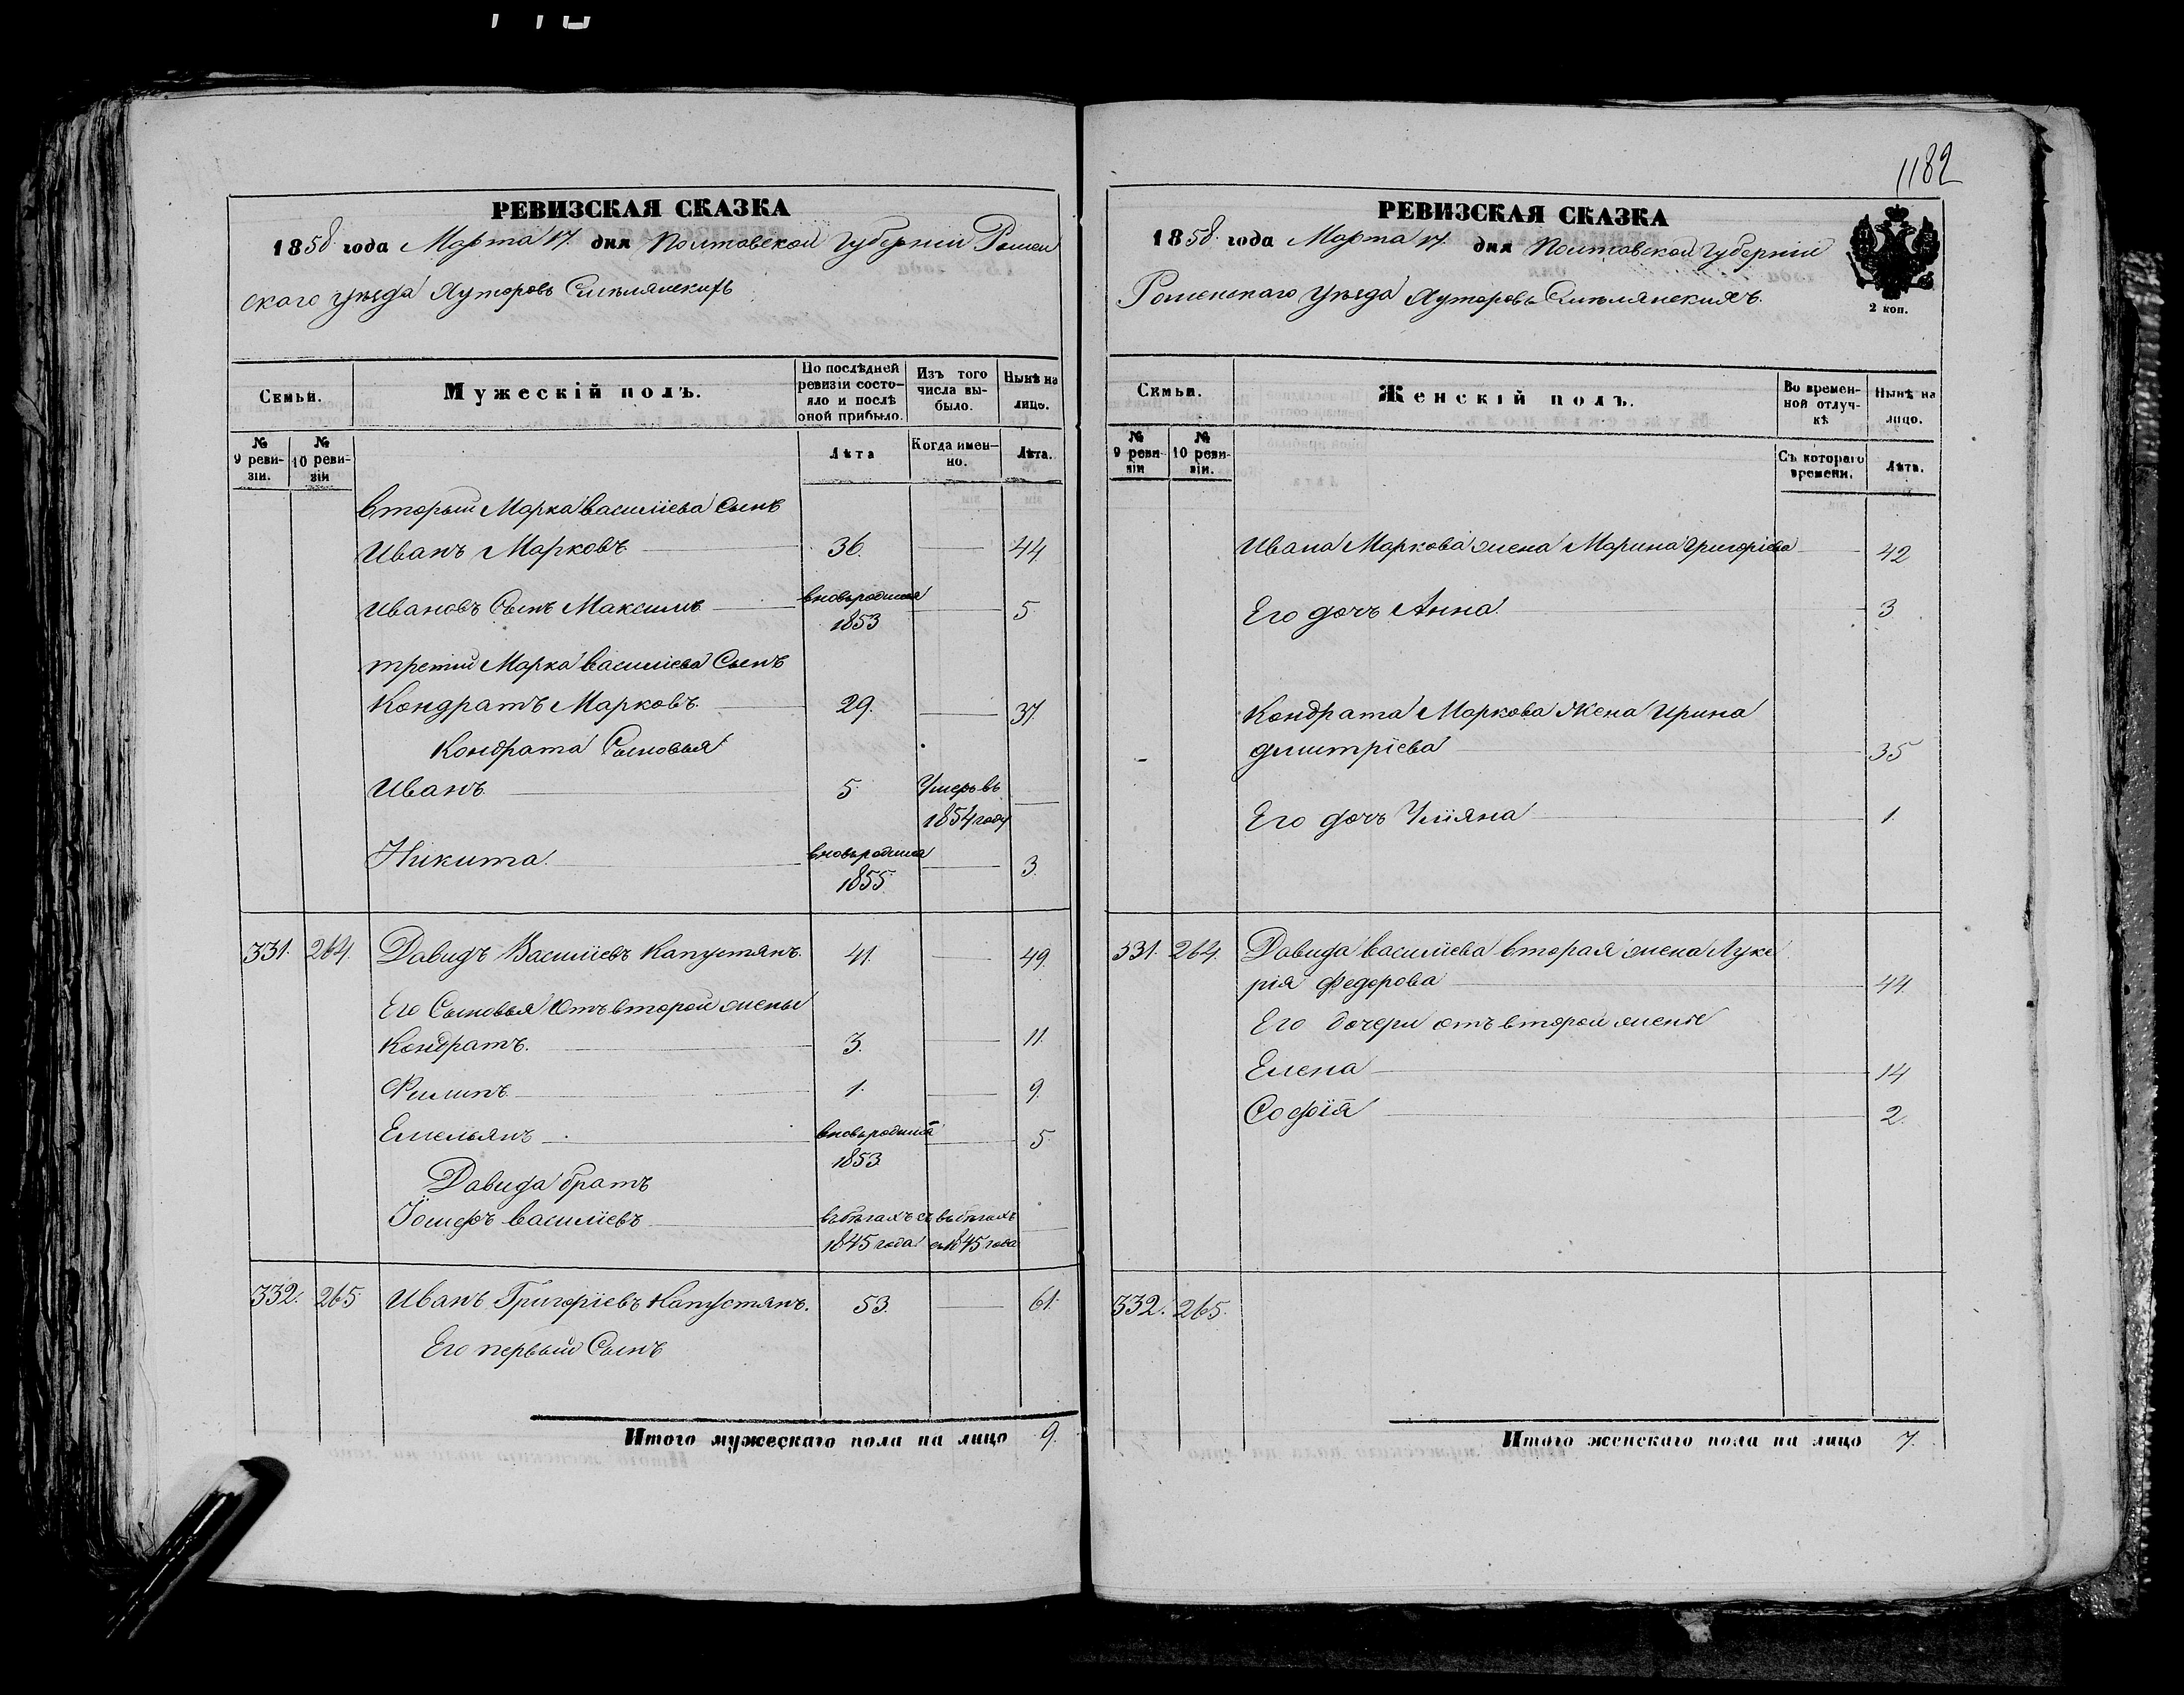 1182
РЕВИЗСКАЯ СКАЗКА
1858 года Марта 17 дня Полтавской Губерніи Ромен
скаго уѣзда Хуторовъ Смѣлянскихъ
Семьи.
Мужескій полъ.
По послѣдней ревизіи состо-
яло и послѣ оной прибыло.
Изъ того числа вы-
было.
Нынѣ на лицо.
№ 9 реви-
зіи.
№ 10 реви-
зіи
Лѣта
Когда имен-
но.
Лѣта.
вторый Марка Васильева Сынъ
Иванъ Марковъ 36. 44.
Ивановъ Сынъ Максимъ 1853 5.
третій Марка Васильева Сынъ
Кондратъ Марковъ. 29. 37.
Кондрата Сыновья
Иванъ. 5. Умеръ въ
1854 году
Никита. 1855. 3.
331. 264. Давидъ Василіевъ Капустянъ. 41. 49.
Его Сыновья Отъ второй жены
Кондратъ. 3. 11.
Филипъ 1. 9.
Емельянъ 1853 5.
Давида братъ
Іосифъ Василіевъ въ бѣгахъ съ въ бѣгахъ
1845 года съ 1845 года
332. 265 Иванъ Григоріевъ Капустянъ. 53. 61.
Его первый Сынъ
Итого мужескаго пола на лицо 9.
РЕВИЗСКАЯ СКАЗКА
1858 года Марта 17 дня Полтавской Губерніи
Роменскаго уѣзда Хуторовъ Смѣлянскихъ.
2 коп.
Семьи.
Женскій полъ.
Во времен-
ной отлуч-
кѣ
Нынѣ на лицо.
№ 9 реви-
зіи
№ 10 реви-
зіи.
Съ котораго времени.
Лѣта.
Ивана Маркова жена Марина Григоріева 42
Его дочь Анна 3
Кондрата Маркова Жена Ирина
Дмитріева 35
Его дочь Уліяна 1.
331. 264. Давида Василіева вторая жена Луке
рія Федорова 44.
Его дочери отъ второй жены
Елена 14
Софія 2.
332. 265.
Итого женскаго пола на лицо 7.